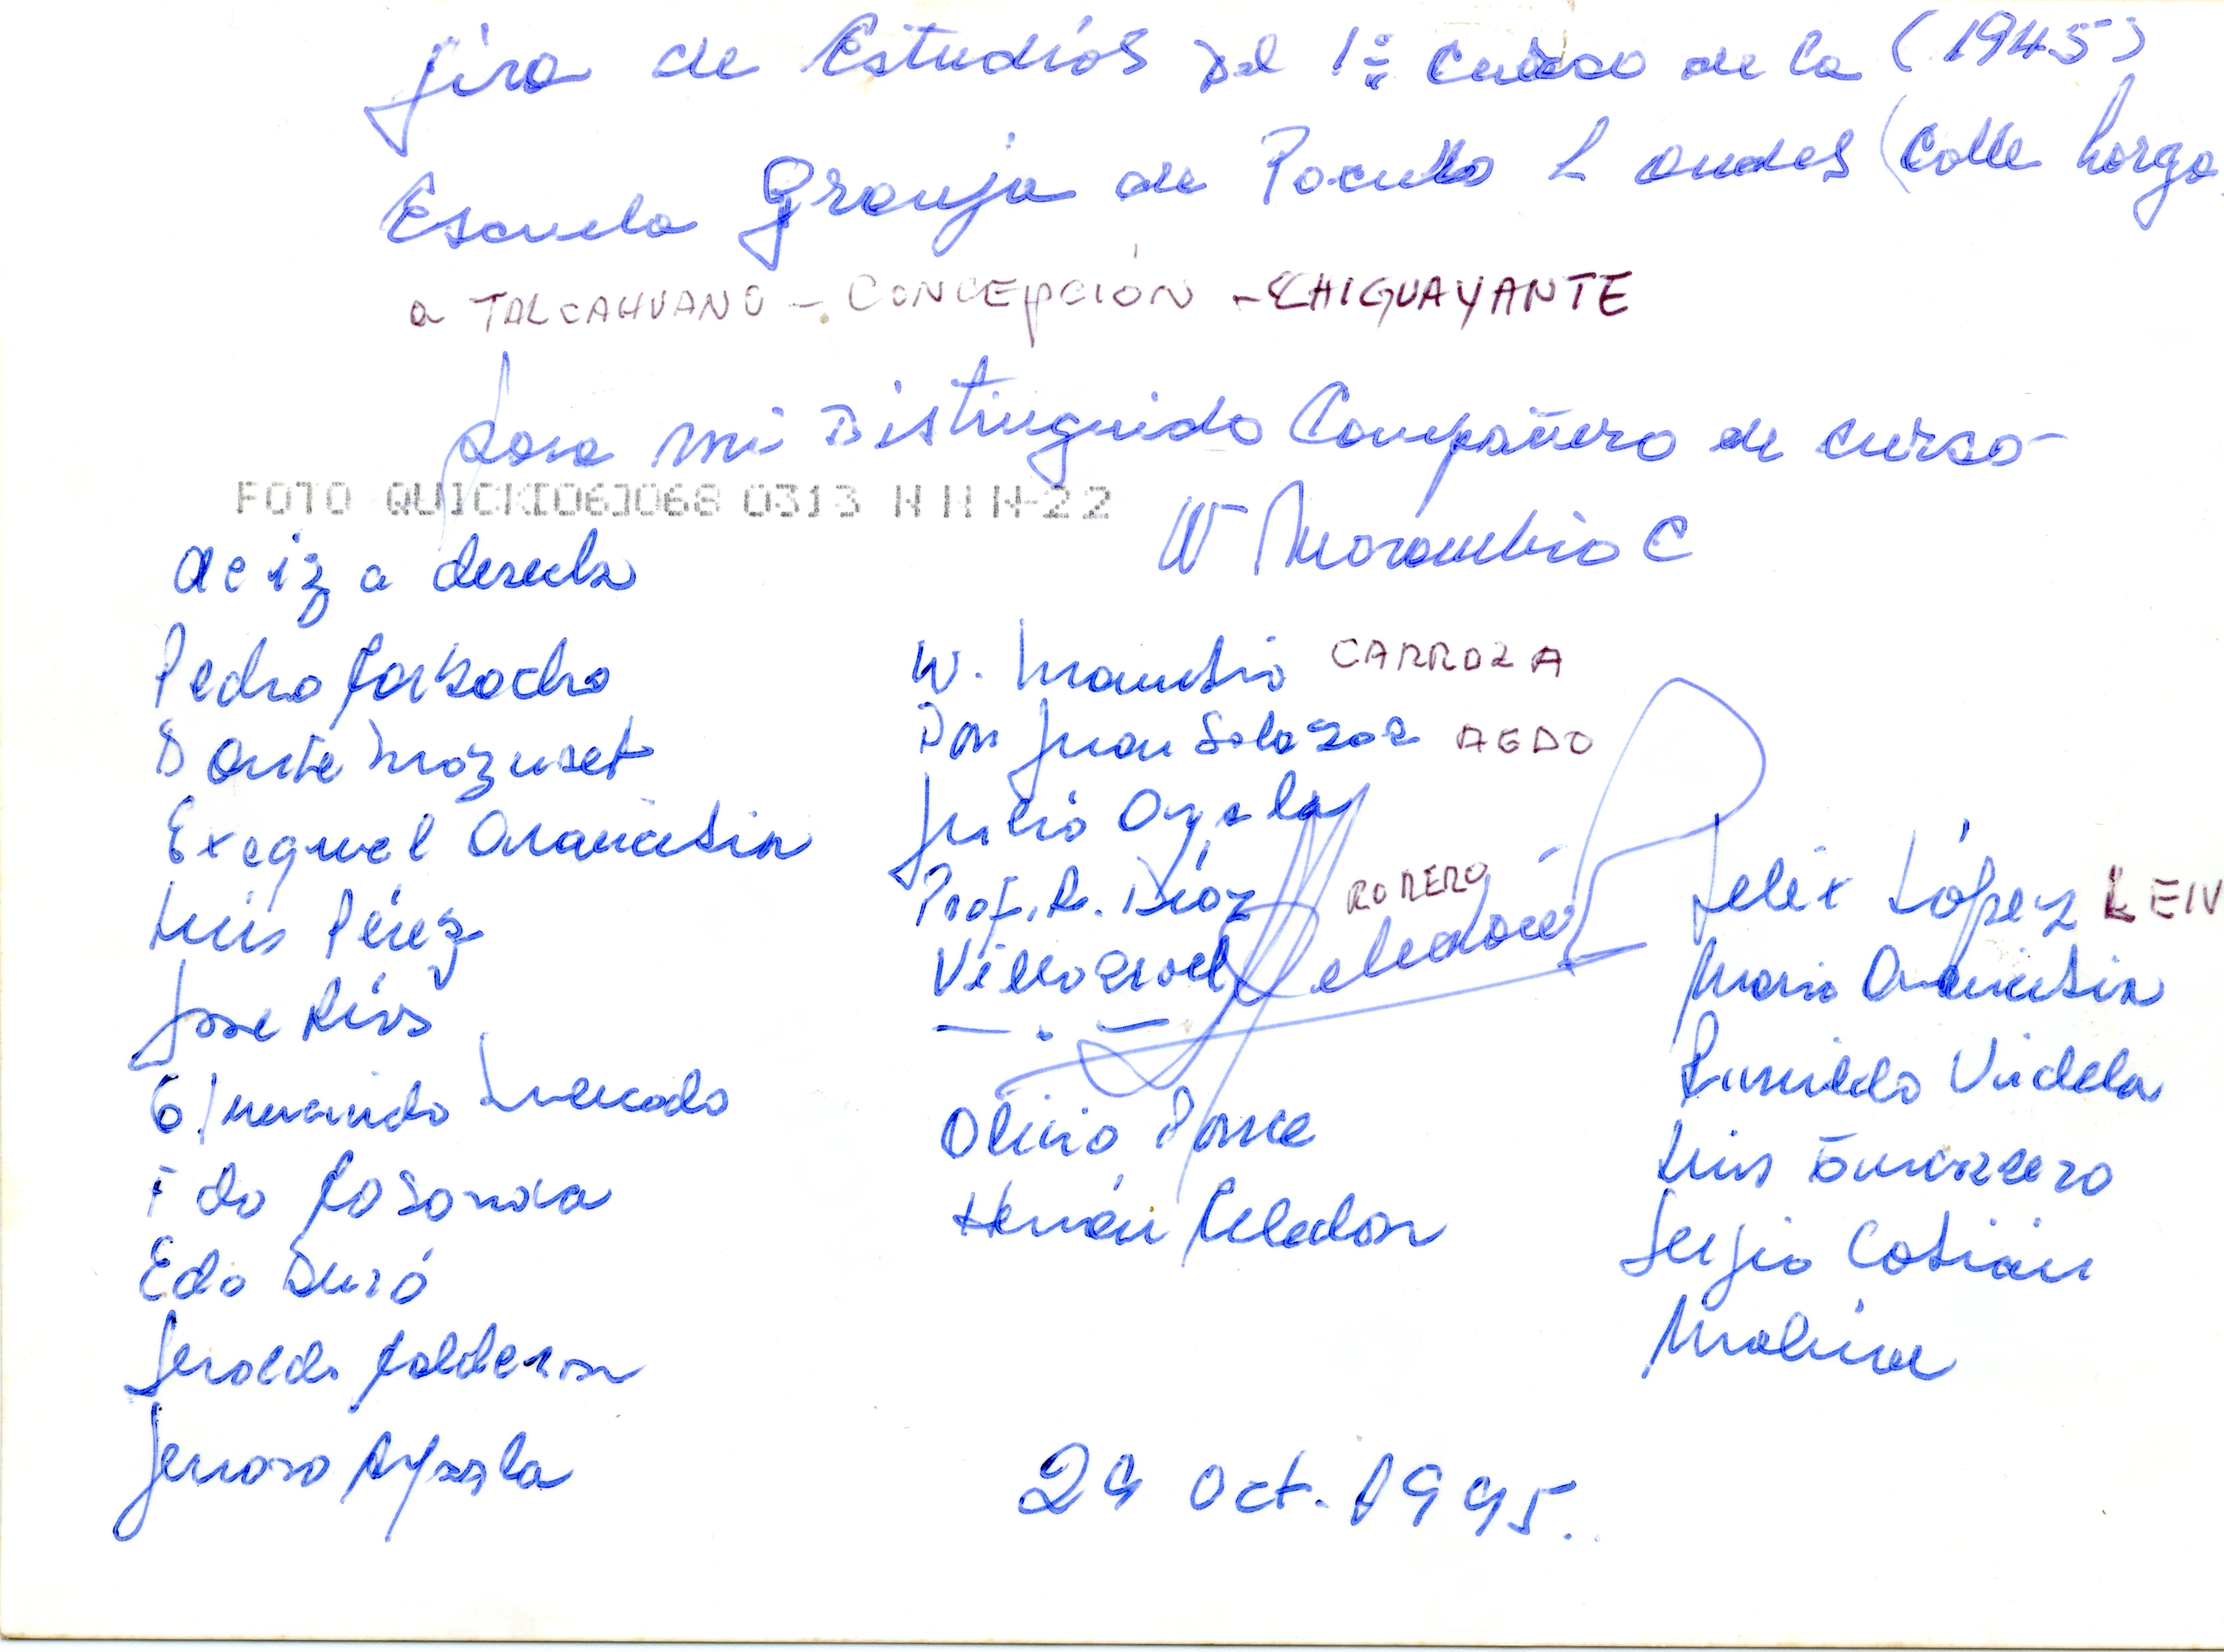 Jira de Estudios Del 1º Curso de la (1945)
Escuela Granja de Pocuro L Andes (Calle Larga
a TALCAHUANO - CONCEPCIÓN - CHIGUAYANTE
para mi Distinguido Compañero de curso
FOTO QUICK 0313 N N N-22
W Marambio C
de iz a derecha
Pedro
Dante
Exequiel Arancibia
Luis Pérez
José Ríos
Mercado
Edo Duró
Jeraldo Calderon
Jenaro Ayala
W. Marambio CARROZA
Don Juan Salazar AEDO
Julio Ayala
Prof. R. Díaz ROMERO
Villarroel Celedón
Olivio Ponce
Hernán Celedon
Felix López LEIV
Mario Arancibia
Rumildo Videla
Luis
Sergio Cobián
Molina
29 Oct. 1995.